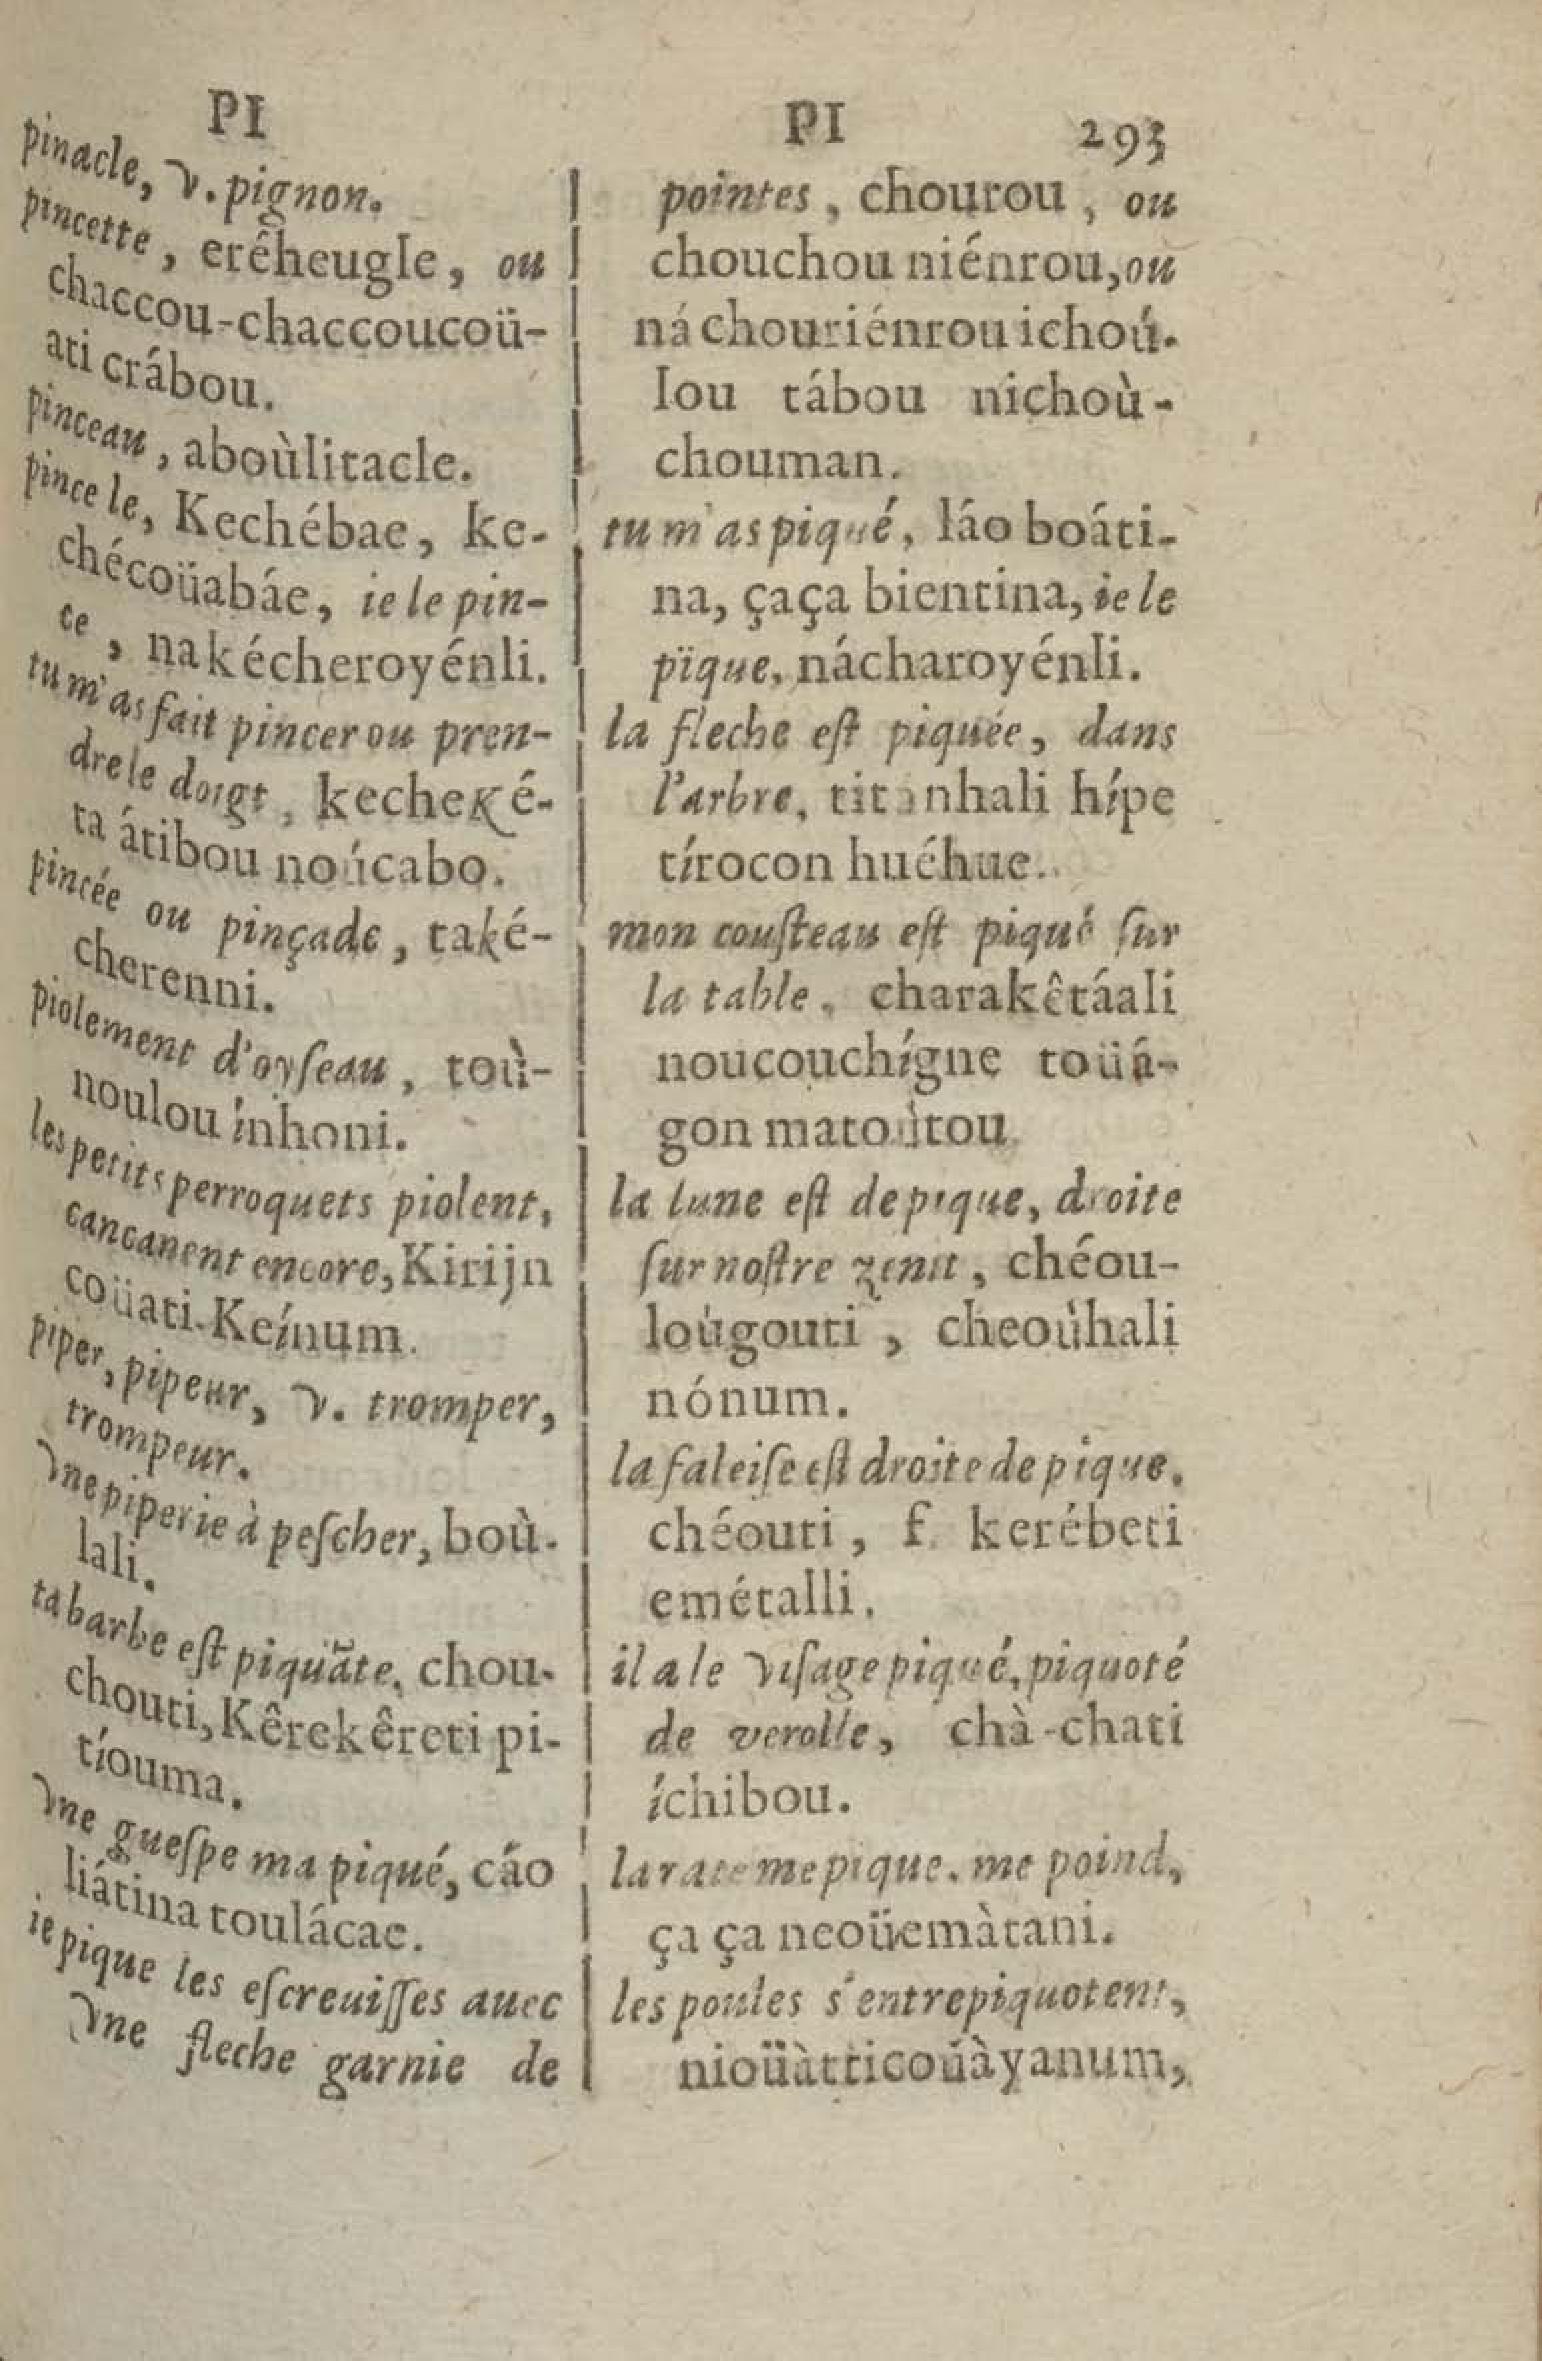 PI
pinacle, v. pignon.
pincette, erêheugle, ou
chaccou-chaccoucoü-
ati crábou.
pinceau, aboùlitacle.
pince le, Kechébae, ke-
chécoüabáe, ie le pin-
ce, nakécheroyénli.
tu m'as fait pincer ou pren-
dre le doigt, kecheké-
ta átibou noúcabo.
pincée ou pinçade, také-
cherenni.
piolement d'oyſeau, toù-
noulou ínhoni.
les petits perroquets piolent,
cancanent encore, Kirijn
coüati-Keínum.
piper, pipeur, v. tromper,
trompeur.
vne piperie à peſcher, boù-
lali.
ta barbe eſt piquãte, chou-
chouti, Kêrekêreti pi-
tíouma.
vne gueſpe ma piqué, cáo
liátina toulácae.
ie pique les eſcreuiſſes auec
vne fleche garnie de
PI 293
pointes, chourou, ou
chouchou niénrou, ou
ná chouriénrou ichoú.
Iou tábou nichoù-
chouman.
tu m'as piqué, láo boáti-
na, çaça bientina, ie le
pïque, nácharoyénli.
la fleche eſt piquée, dans
l'arbre, titanhali hípe
tírocon huéhue.
mon couſteau eſt piqué ſur
la table, charakêtáali
noucouchígne toüá-
gon matoùtou
la lune eſt de pique, droite
ſur noſtre zenit, chéou-
loùgouti, cheoùhali
nónum.
la faleiſe eſt droite de pique,
chéouti, f. kerébeti
emétalli.
il a le viſage piqué, piquoté
de verolle, chà-chati
íchibou.
la rate me pique, me poind,
ça ça neoüemàtani.
les poules s'entrepiquotent,
nioüàtticoúàyanum,